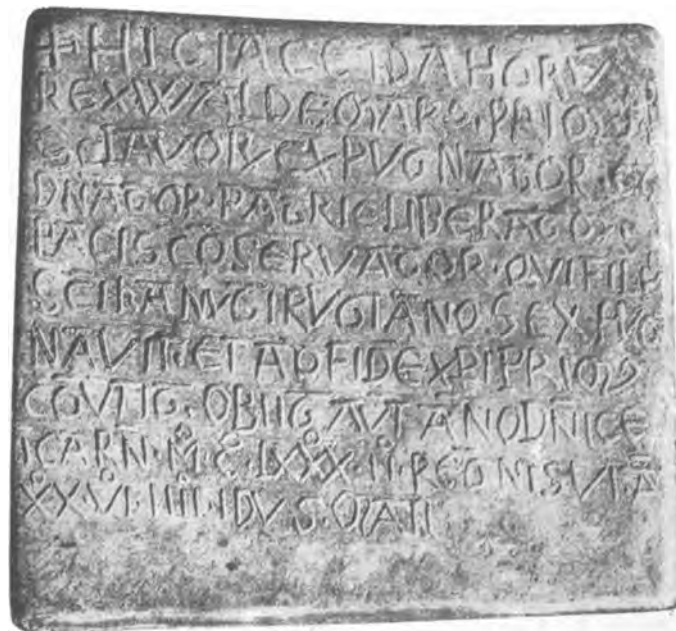 + HIC IACET DANORV̄
REX·WALDEMARꝰ·PRIMꝰ
SCLAVORV̄ EXPVGNATOR·ET
DN̄ATOR·PATRIE LIBERATOR
PACIS CŌSERVATOR·QVI FILIꝰ
SC̄I KANVTI RVGIANOS EXPVG
NAVIT·ET AD FIDĒ XPI PRIMꝰ
CŌVTIT·OBIIT AVT̄ ANO DN̄ICE
ICARN·M̊·C̊·LXXX̊·II̊·REGNI SVI Ā
XX̊·VI̊·IIII·IDVS·MAII